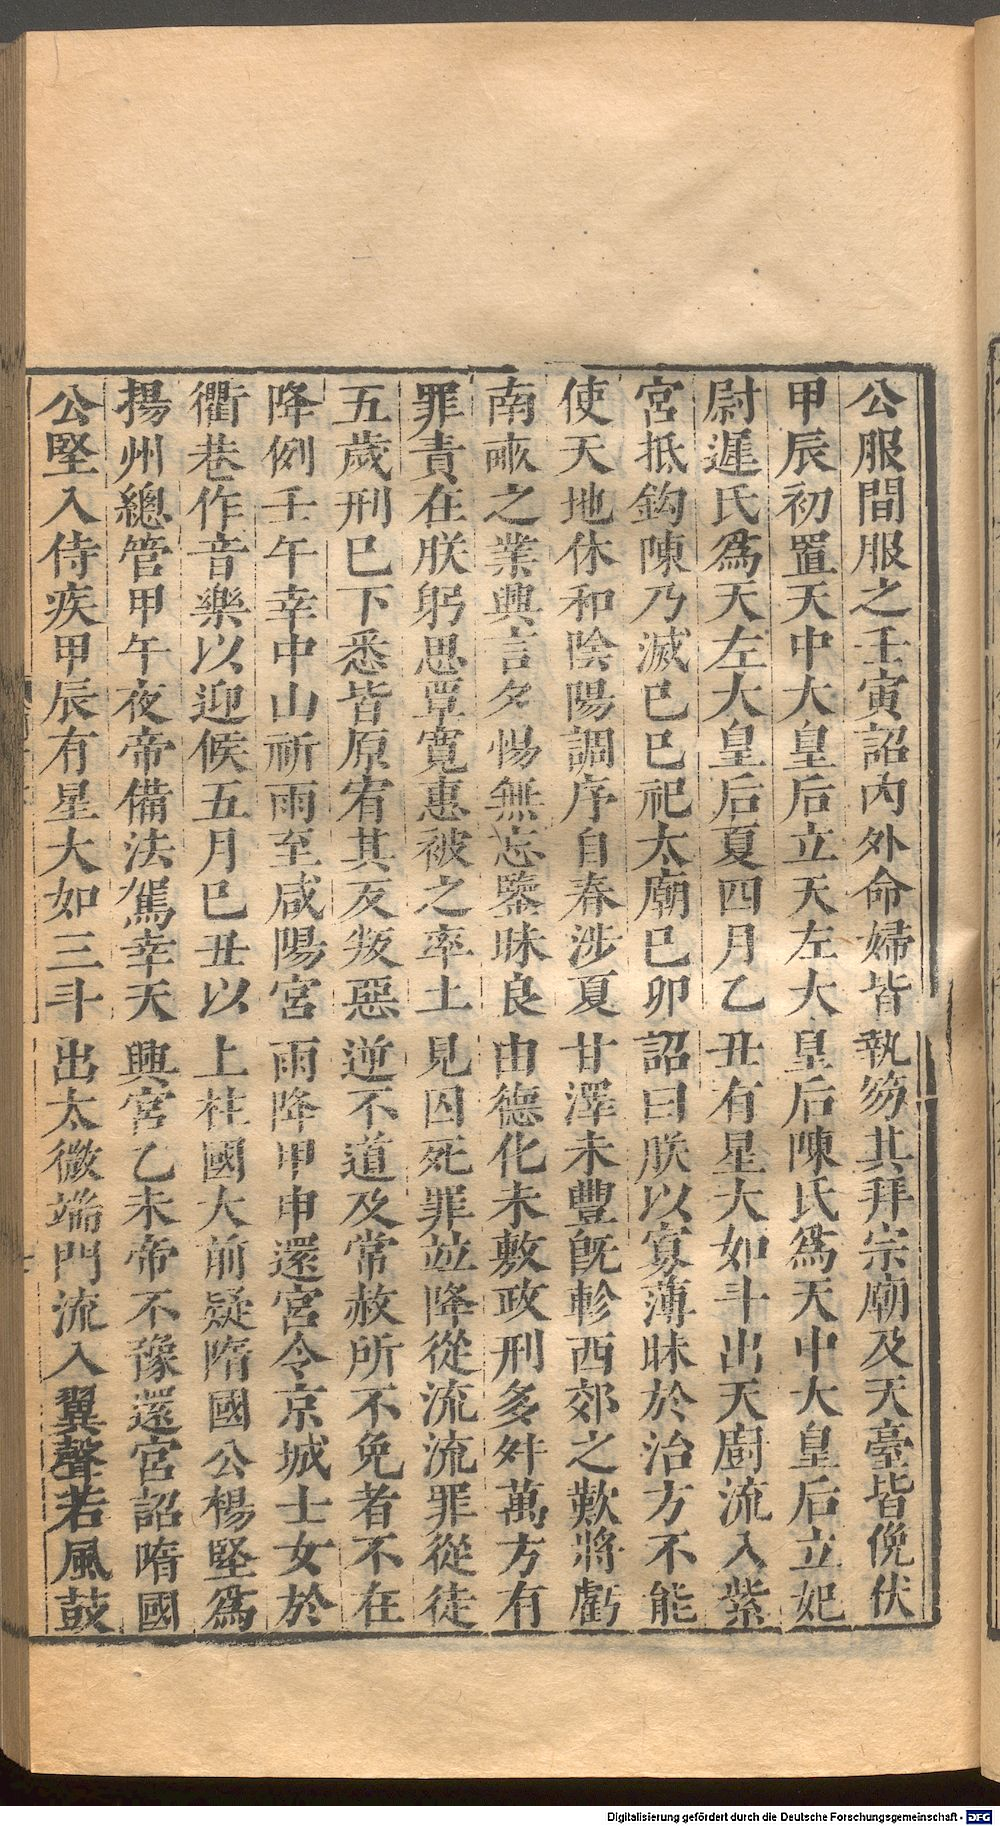 公服間服之壬寅詔内外命婦皆執笏其拜宗廟及天臺皆俛伏
甲辰初置天中大皇后立天左大皇后陳氏爲天中大皇后立妃
尉遲氏爲天左大皇后夏四月乙丑有星大如斗出天廚流入紫
宮抵鈎陳乃滅巳巳祀太廟巳卯詔曰朕以寡薄昧於治方不能
使天地休和陰陽調序自春涉夏甘澤未豐旣軫西郊之歎將虧
南畝之業興言夕惕無忘鑒昧良由德化未敷政刑多舛萬方有
罪責在朕躬思覃寛惠被之率土見囚死罪並降從流流罪從徒
五歲刑巳下悉皆原宥其反叛惡逆不道及常赦所不免者不在
降例壬午幸中山祈雨至咸陽宮雨降甲申還宮令京城士女於
衢巷作音樂以迎候五月巳丑以上柱國大前疑隋國公楊堅爲
揚州總管甲午夜帝備法駕幸天興宮乙未帝不豫還宮詔隋國
公堅入侍疾甲辰有星大如三斗出太微端門流入翼聲若風鼓
Digitalisierung gefördert durch die Deutsche Forschungsgemeinschaft - DFG